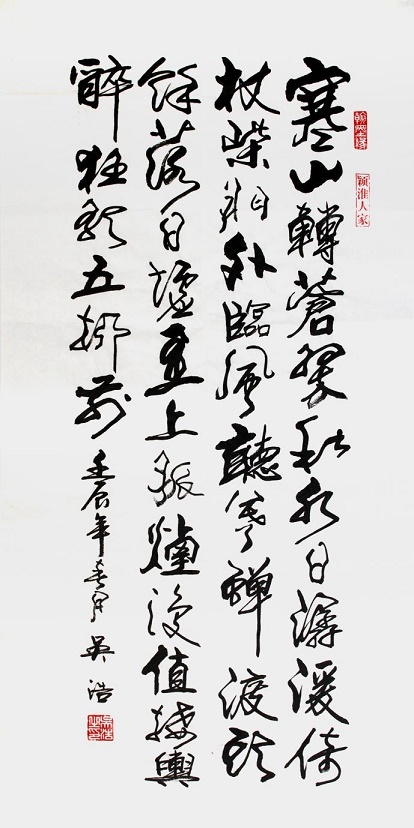 寒山轉蒼翠秋水日潺湲倚
杖柴門外臨風聽暮蟬渡頭
餘落日墟里上孤煙復值接輿
醉狂歌五柳前
壬辰年春月吴浩
翰墨缘
颖淮人家